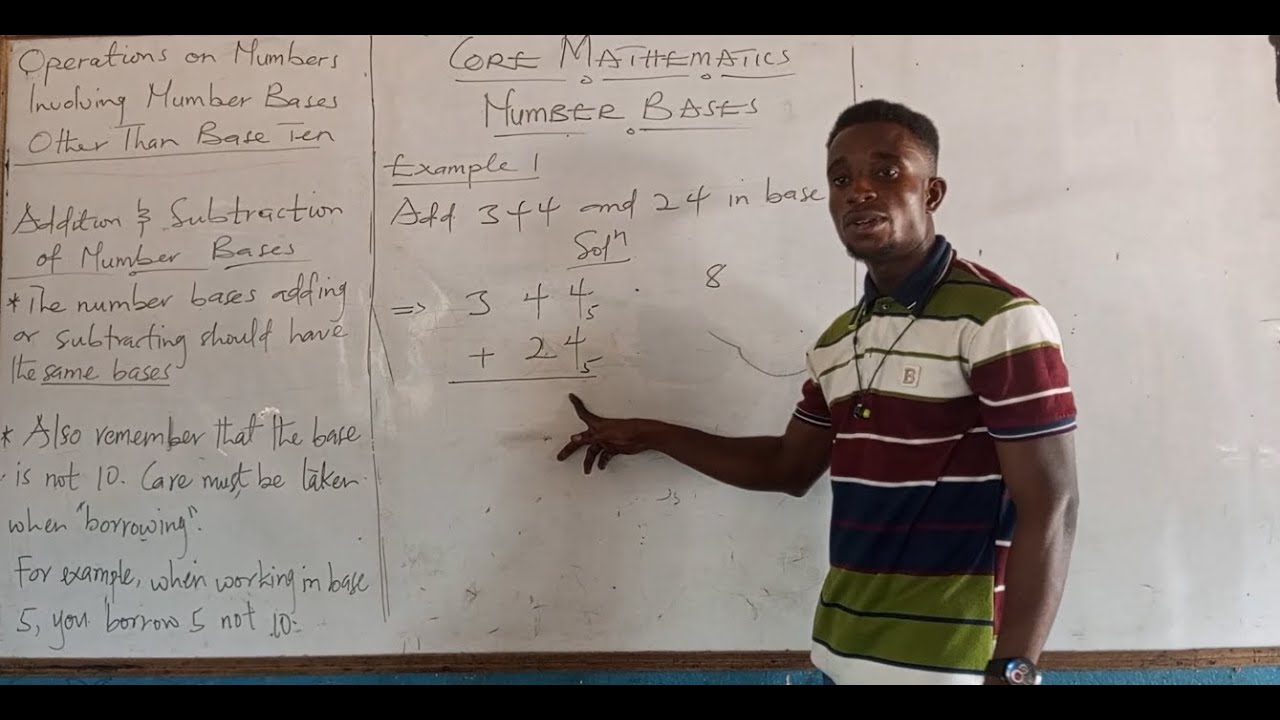 Operations on Numbers
Involving Number Bases
Other Than Base Ten
Addition & Subtraction
of Number Bases
* The number bases adding
or subtracting should have
the same bases
* Also remember that the base
is not 10. Care must be taken
when "borrowing".
For example, when working in base
5, you borrow 5 not 10.
CORE MATHEMATICS
NUMBER BASES
Example 1
Add 344 and 24 in base
Solⁿ
=> 3 4 4₅
+ 2 4₅
8
B